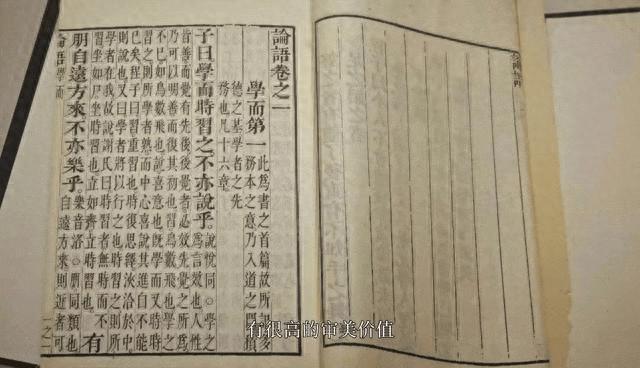 論語卷之一
學而第一
此爲書之首篇故所記多
務本之意乃入道之門積
德之基學者之先
務也凡十六章
子曰學而時習之不亦說乎
說悅同○學之
爲言效也人性
皆善而覺有先後後覺者必效先覺之所爲
乃可以明善而復其初也習鳥數飛也學之
不已如鳥數飛也說喜意也既學而又時時
習之則所學者熟而中心喜說其進自不能
已矣程子曰習重習也時復思繹浹洽於中
則說也又曰學者將以行之也時習之則所
學者在我故說謝氏曰時習者無時而不
習坐如尸坐時習也立如齊立時習也
有
朋自遠方來不亦樂乎
樂音洛○朋同類也
自遠方來則近者可
論語 學而
有很高的审美价值